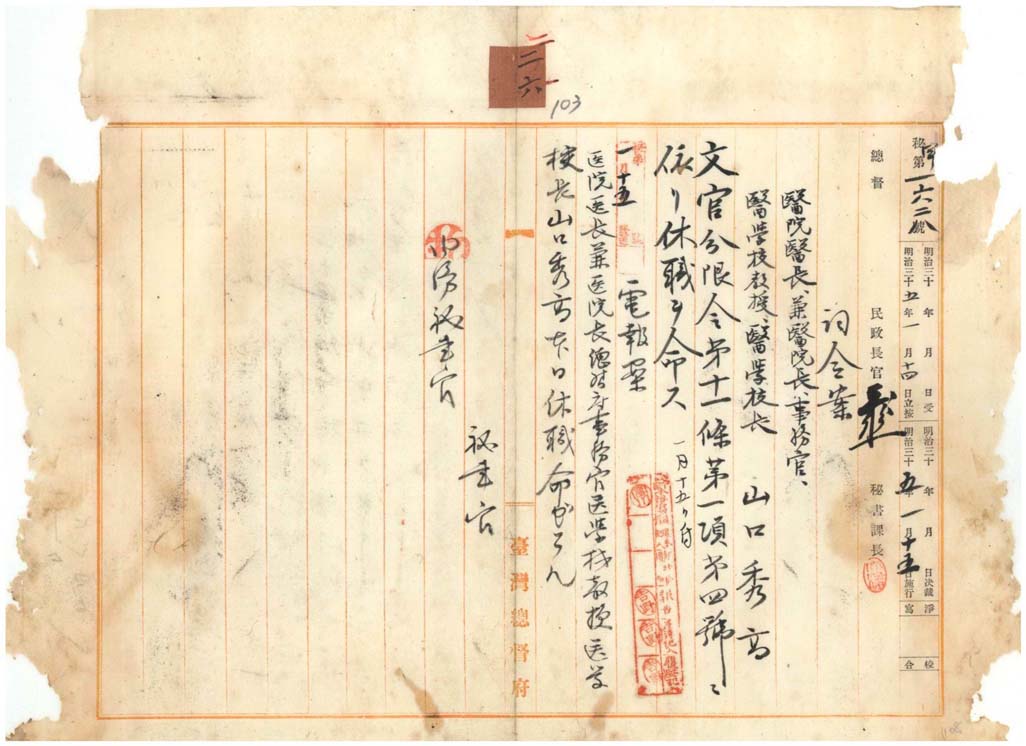 二二六
103
秘甲第一六二八號
明治三十 年 月 日受 明治三十 年 月 日決裁 淨
明治三十五年一月十四日立按 明治三十五年一月十五日施行 寫 校合
總督
民政長官
秘書課長
詞令案
醫院醫長、兼醫院長、事務官、
醫學校教授、醫學校長 山口秀高
文官分限令第十一條第一項第四號ニ
依リ休職ヲ命ス
一月十五日付
一月十五
電報案
医院医長兼医院長總督府事務官医学校教授医学
校長山口秀高本日休職命セラル
秘書官
秘書官
臺灣總督府